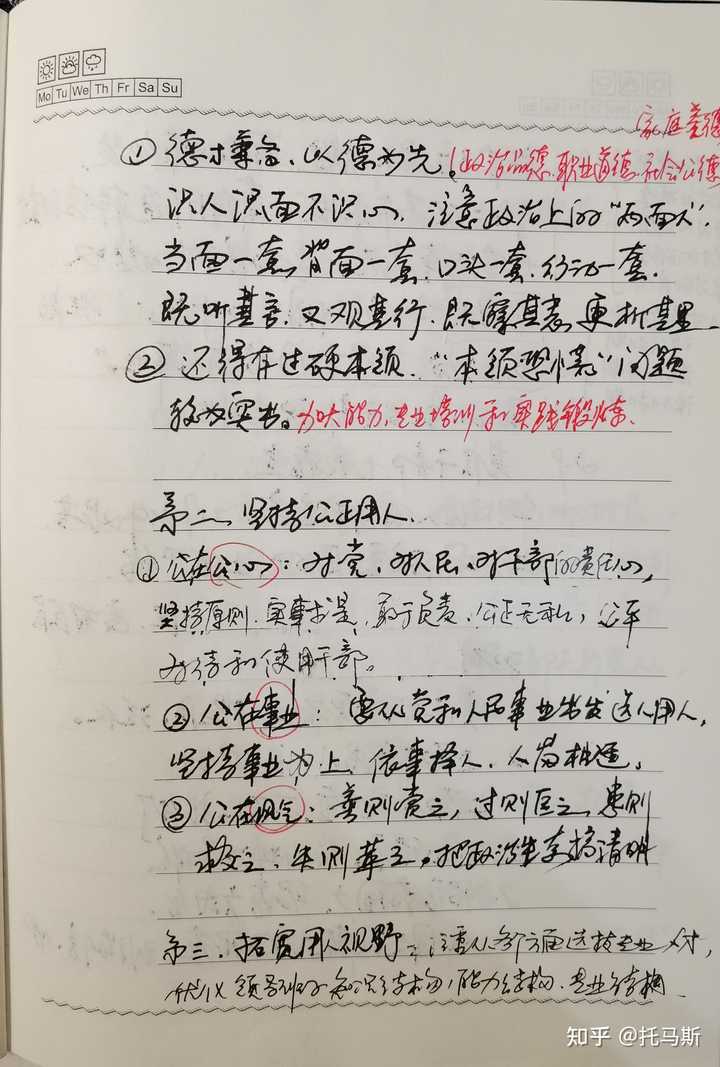 Mo Tu We Th Fr Sa Su
家庭美德
① 德才兼备、以德为先。(政治品德、职业道德、社会公德
识人识面不识心，注意政治上的“两面人”，
当面一套，背面一套，口头一套，行动一套，
既听其言、又观其行、既察其表、更析其里
② 还得有过硬本领，“本领恐慌”问题
较为突出。加大能力、专业培训和实践锻炼。
第二、坚持公正用人。
① 公在公心：对党、对人民、对干部的责任心，
坚持原则、实事求是，敢于负责，公正无私，公平
对待和使用干部。
② 公在事业：要从党和人民事业出发选人用人，
坚持事业为上、依事择人、人岗相适。
③ 公在风气：善则赏之，过则匡之，患则
救之、失则革之，把政治生态搞清明
第三、拓宽用人视野：注重从各方面选拔专业人才，
优化领导班子知识结构，能力结构、专业结构
知乎 @托马斯